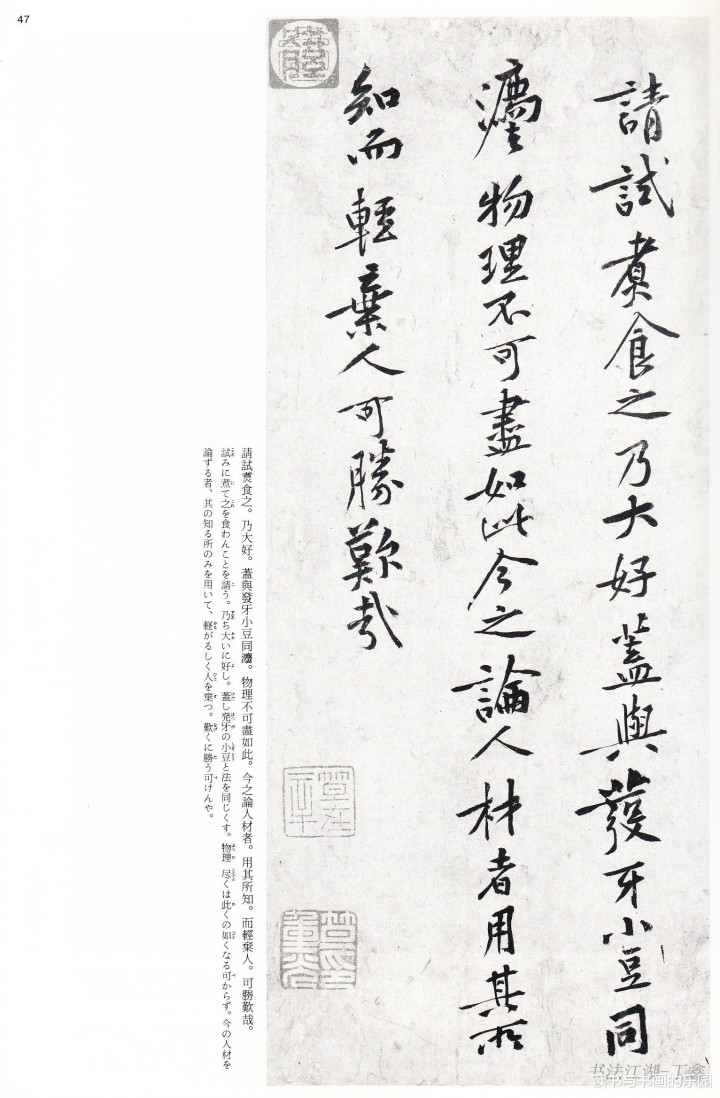 47
請試煑食之乃大好蓋與發牙小豆同
灋物理不可盡如此今之論人材者用其所
知而輕棄人可勝歎哉
請試煑食之。乃大好。蓋與發牙小豆同灋。物理不可盡如此。今之論人材者。用其所知。而輕棄人。可勝歎哉。
試みに煮て之を食わんことを請う。乃ち大いに好し。蓋し発牙の小豆と法を同じくす。物理 尽くは此くの如くなる可からず。今の人材を
論ずる者、其の知る所のみを用いて、軽がるしく人を棄つ。歎くに勝う可けんや。
书法江湖
读书与书画的乐园